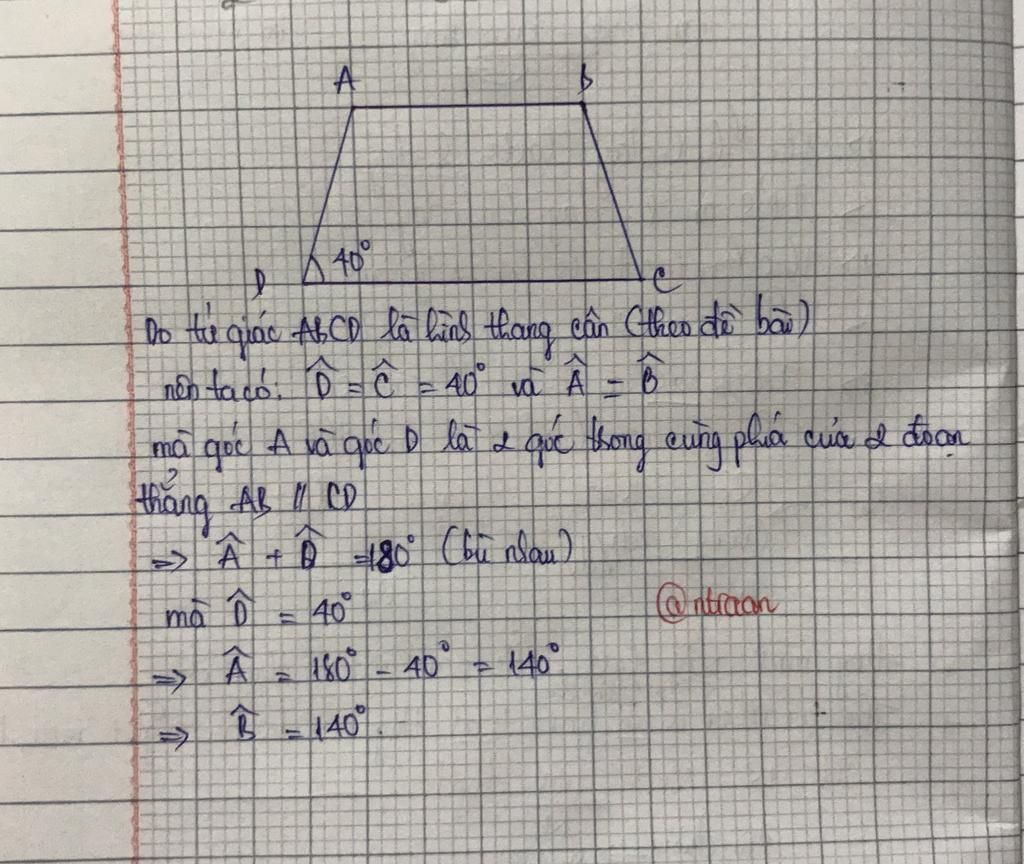 A B
40°
D C
Do tứ giác ABCD là hình thang cân (theo đề bài)
nên ta có: D̂ = Ĉ = 40° và Â = B̂
mà góc A và góc D là 2 góc trong cùng phía của 2 đoạn
thẳng AB // CD
=> Â + D̂ = 180° (bù nhau)
mà D̂ = 40°
@ntraan
=> Â = 180° - 40° = 140°
=> B̂ = 140°.